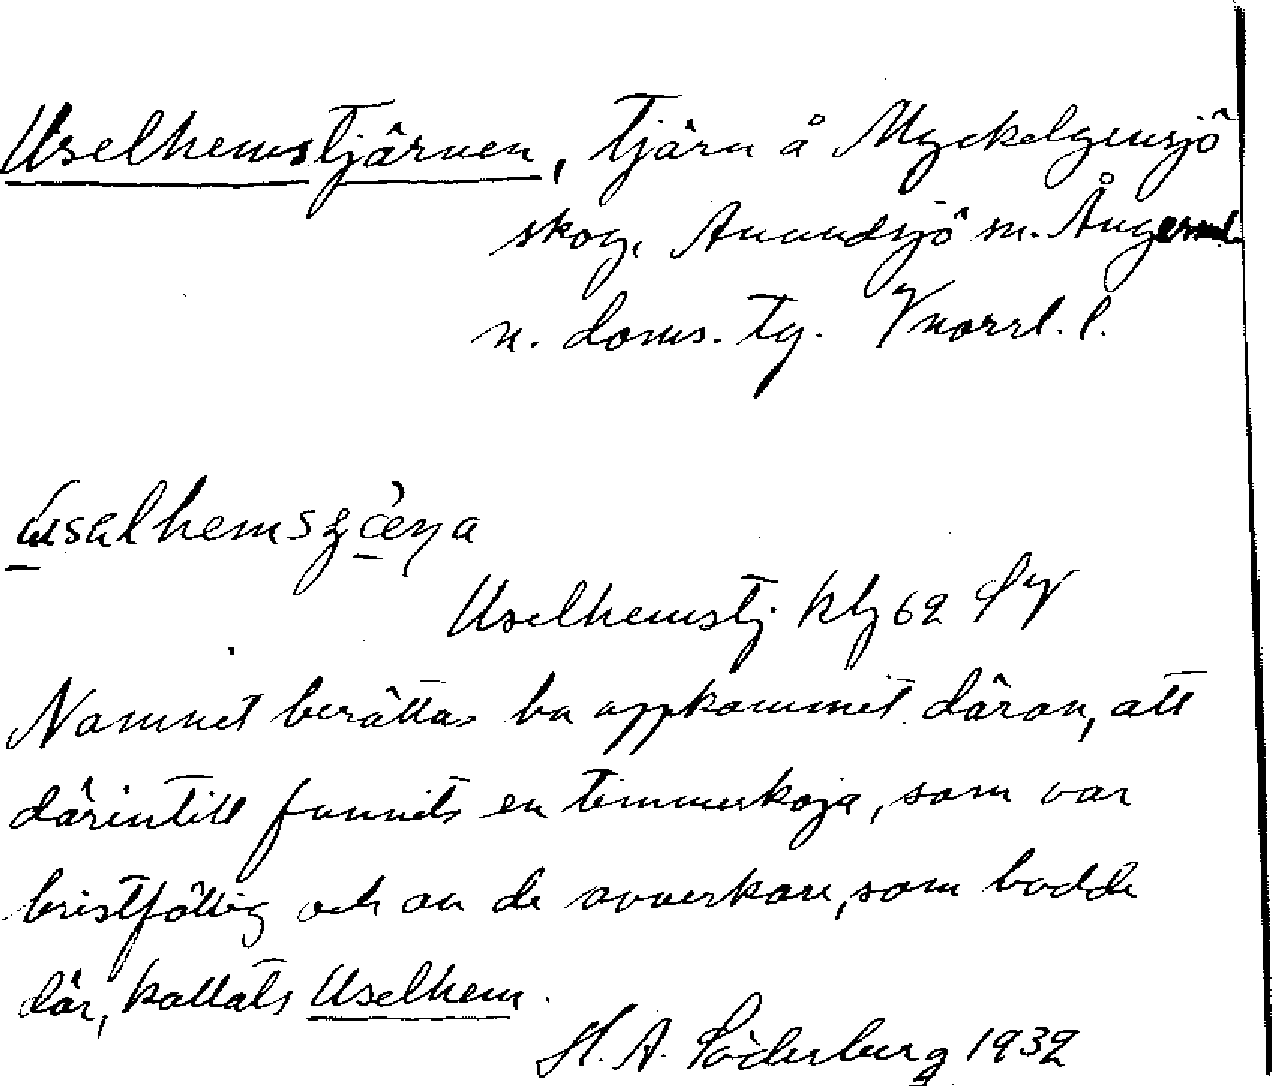 Uselhemstjärnen, tjärn å Myckelgensjö
skog, Anundsjö sn. Ångerml.
n. doms. tg. V norrl. l.
Uselhemstj. kbl 62
Namnet berättas ha uppkommit därav, att
därintill funnits en timmerkoja, som var
bristfällig och av de avverkare, som bodde
där, kallats Uselhem.
H. A. Söderberg 1932